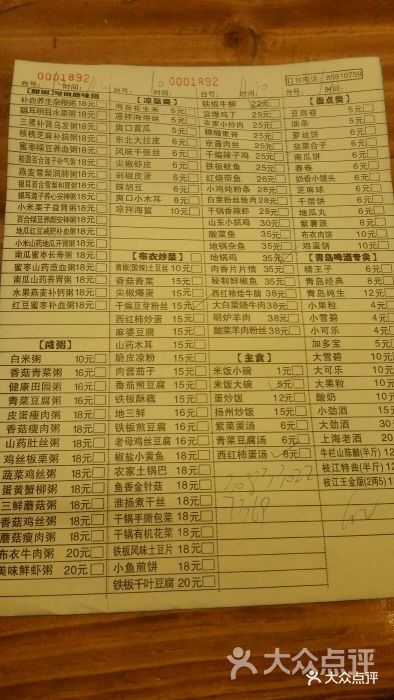 0001892
0001892
订餐电话:85510759
台号: 时间:
台号: 时间:
补血养生杂粮粥18元
聪耳明目水果粥18元
三黑补肾乌发粥18元
核桃芝麻补脑粥18元
蜜枣绿豆养血粥18元
桂圆百合莲子补气粥18元
燕麦雪梨润肺粥18元
银耳百合雪梨和胃粥18元
银耳莲子养心安神粥18元
小米栗子益胃粥18元
百合绿豆养颜安神粥18元
地瓜红豆减肥补血粥18元
小米山药地瓜开胃粥18元
南瓜蜜枣长寿粥18元
蜜枣山药造血粥18元
南瓜山药养胃粥18元
水果燕麦补钙粥18元
红豆蜜枣补血粥18元
【咸粥】
白米粥 10元
香菇青菜粥 16元
健康田园粥 16元
青菜豆腐粥 16元
皮蛋瘦肉粥 18元
香菇瘦肉粥 18元
山药肚丝粥 18元
鸡丝板栗粥 18元
蔬菜鸡丝粥 18元
蛋黄蟹柳粥 18元
三鲜蘑菇粥 18元
香菇鸡丝粥 18元
蘑菇瘦肉粥 18元
布衣牛肉粥 20元
美味鲜虾粥 20元
【凉菜类】
海苔花生米 5元
凉拌海带丝 5元
爽口黄瓜 5元
东北大拉皮 6元
风味千张丝 6元
尖椒虾皮 6元
剁椒皮蛋 6元
辣胡豆 6元
爽口小木耳 8元
凉拌海蜇 10元
【布衣炒菜】
青椒(酸辣)土豆丝 10元
香菇青菜 15元
尖椒爆蛋 15元
干煸豆芽粉丝 15元
西红柿炒蛋 15元
麻婆豆腐 15元
山药木耳 15元
脆皮凉粉 15元
肉酱茄子 15元
番茄煎豆腐 15元
铁板酥藕 15元
地三鲜 16元
铁板煎豆腐 16元
老母鸡丝豆腐 16元
椒盐小黄鱼 18元
农家土锅巴 18元
鱼香金针菇 18元
淮扬煮干丝 18元
干锅手撕包菜 18元
干锅有机花菜 18元
铁板风味土豆片 18元
小鱼煎饼 18元
铁板千叶豆腐 20元
铁板牛柳 22元
宫爆鸡丁 25元
农家小炒肉 25元
糖醋里脊 25元
京酱肉丝 25元
干煸辣子鸡 25元
铁板鱿鱼 25元
红烧带鱼 25元
小鸡炖粉条 28元
白菜粉丝烩肉 28元
干锅香辣虾 28元
山东小抓鸡 30元
酸菜鱼 35元
地锅杂鱼 35元
地锅鸡 35元
肉香片片情 35元
秘制鲜椒鱼 35元
西红柿炖牛腩 38元
大白菜烧牛肉 38元
明炉羊肉 38元
酸菜羊肉粉丝 38元
【主食】
米饭小碗 1元
米饭大碗 5元
蛋炒饭 12元
扬州炒饭 15元
紫菜蛋汤 6元
青菜豆腐汤 6元
西红柿蛋汤 8元
【面点类】
豆腐卷 5元
油条 5元
萝丝饼 6元
韭菜合子 6元
南瓜饼 6元
春卷 6元
奶香小馒头 6元
芝麻球 6元
千层饼 6元
地瓜丸 6元
紫薯派 8元
布衣肉饼 10元
鸡蛋饼 10元
【青岛啤酒专卖】
精王子 6元
青岛经典 8元
青岛纯生 12元
小果粒 4元
小雪碧 4元
小可乐 4元
加多宝 5元
大雪碧 10元
大可乐 10元
大果粒 10元
酸奶 10元
小劲酒 15元
大劲酒 30元
上海老酒 20元
牛栏山陈酿(半斤)12元
枝江特曲(半斤)12元
枝江王金版(2两5)12元
大众点评
大众点评